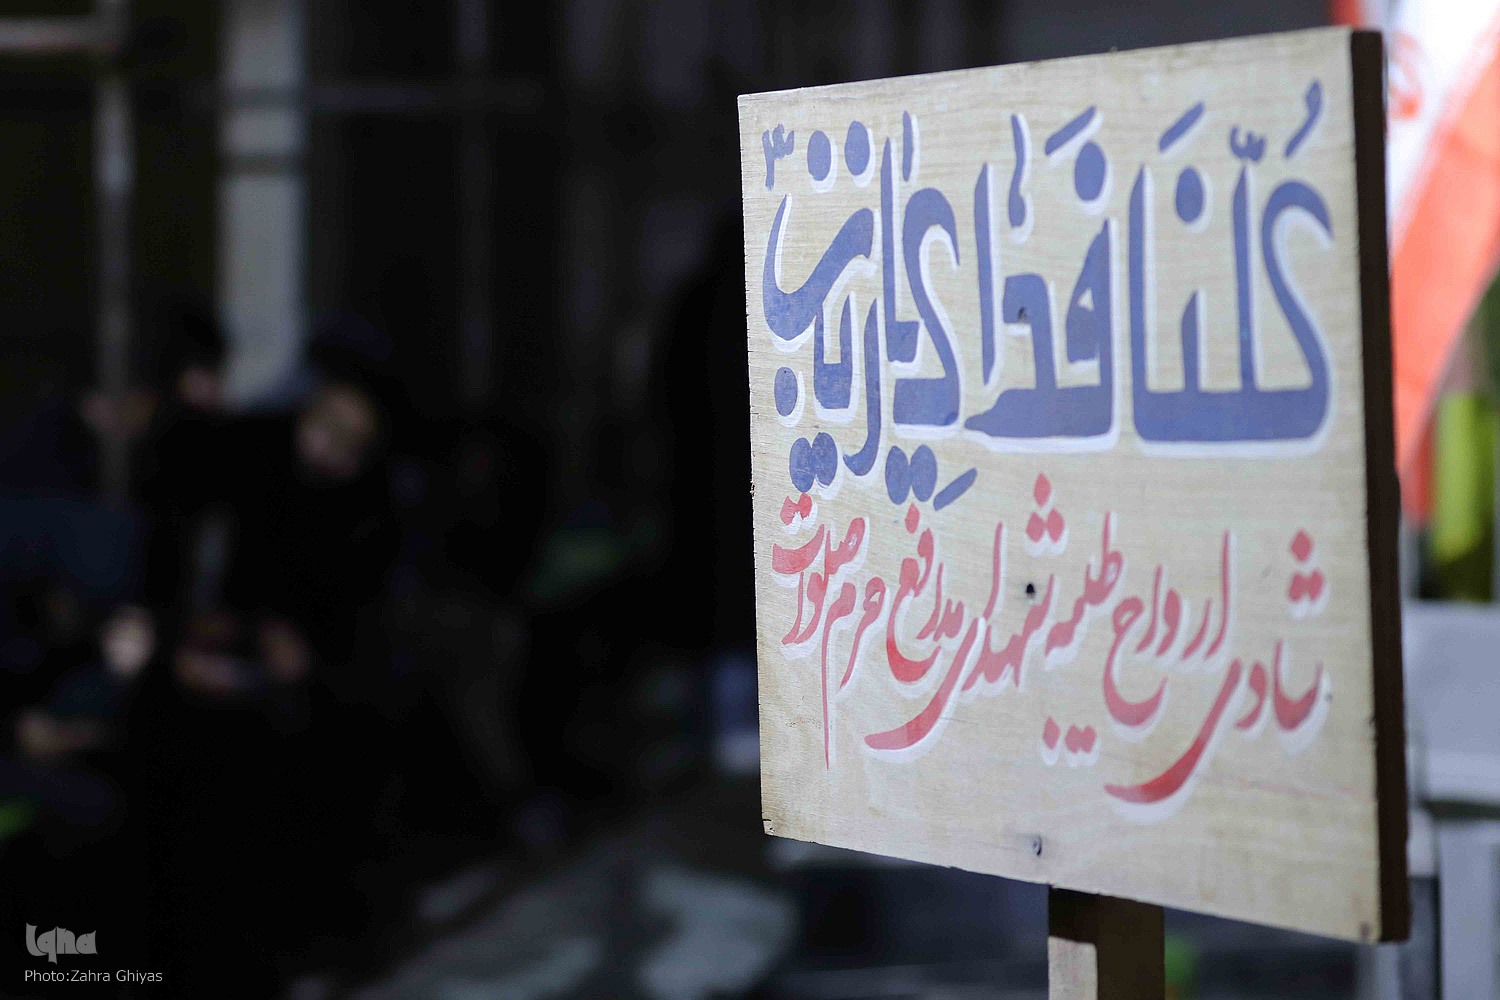 كُلُّنا فَدٰاءِ یازینب ۳
شادی ارواح طیبه شهدای مدافع حرم صلوات
Iqna
Photo:Zahra Ghiyas